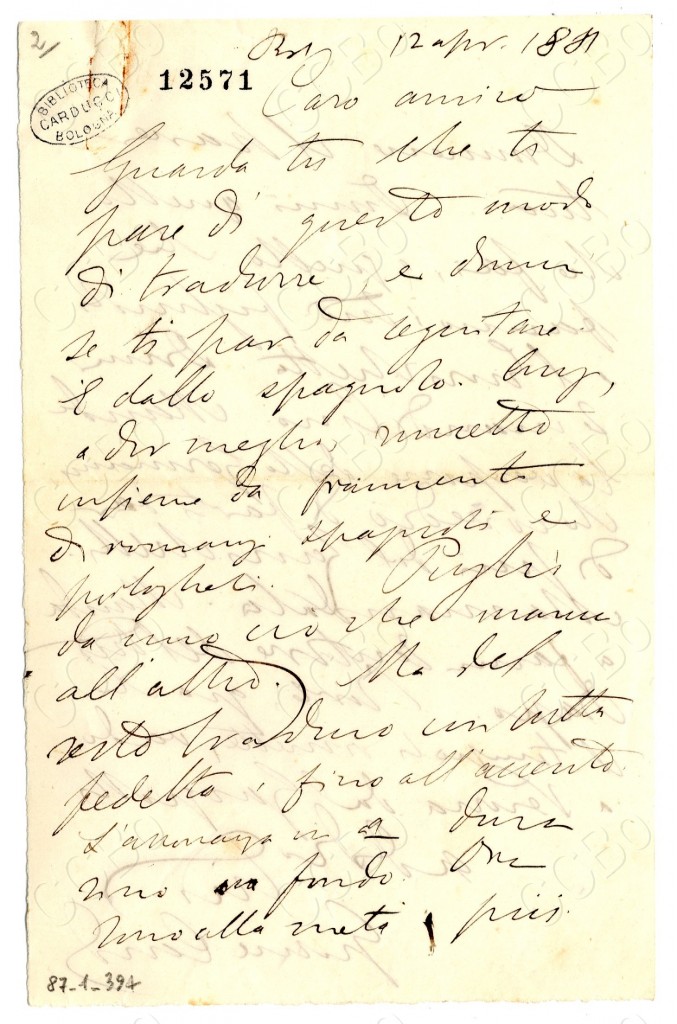 2/
Bol. 12 apr. 1881
12571
BIBLIOTECA
CARDUCCI
BOLOGNA
Caro amico
Guarda tu che ti
pare di questo modo
di tradurre, e dimmi
se ti par da seguitare.
È dallo spagnolo. Anzi,
a dir meglio, rimetto
insieme da frammenti
di romanzi spagnoli e
portoghesi. Piglio
da uno ciò che manca
all'altro. Ma del
resto traduco con tutta
fedeltà, fino all'accento.
L'assonanza in a dura
sino in fondo. Ora
sono alla metà, più.
87-1-394